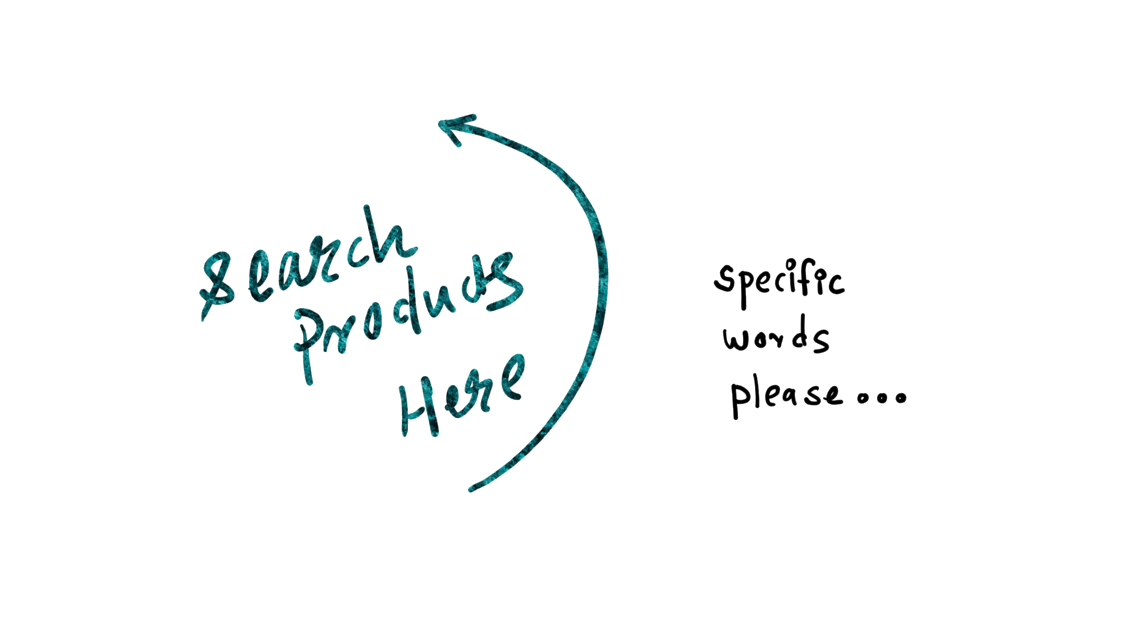 Search
Products
Here
specific
words
please...